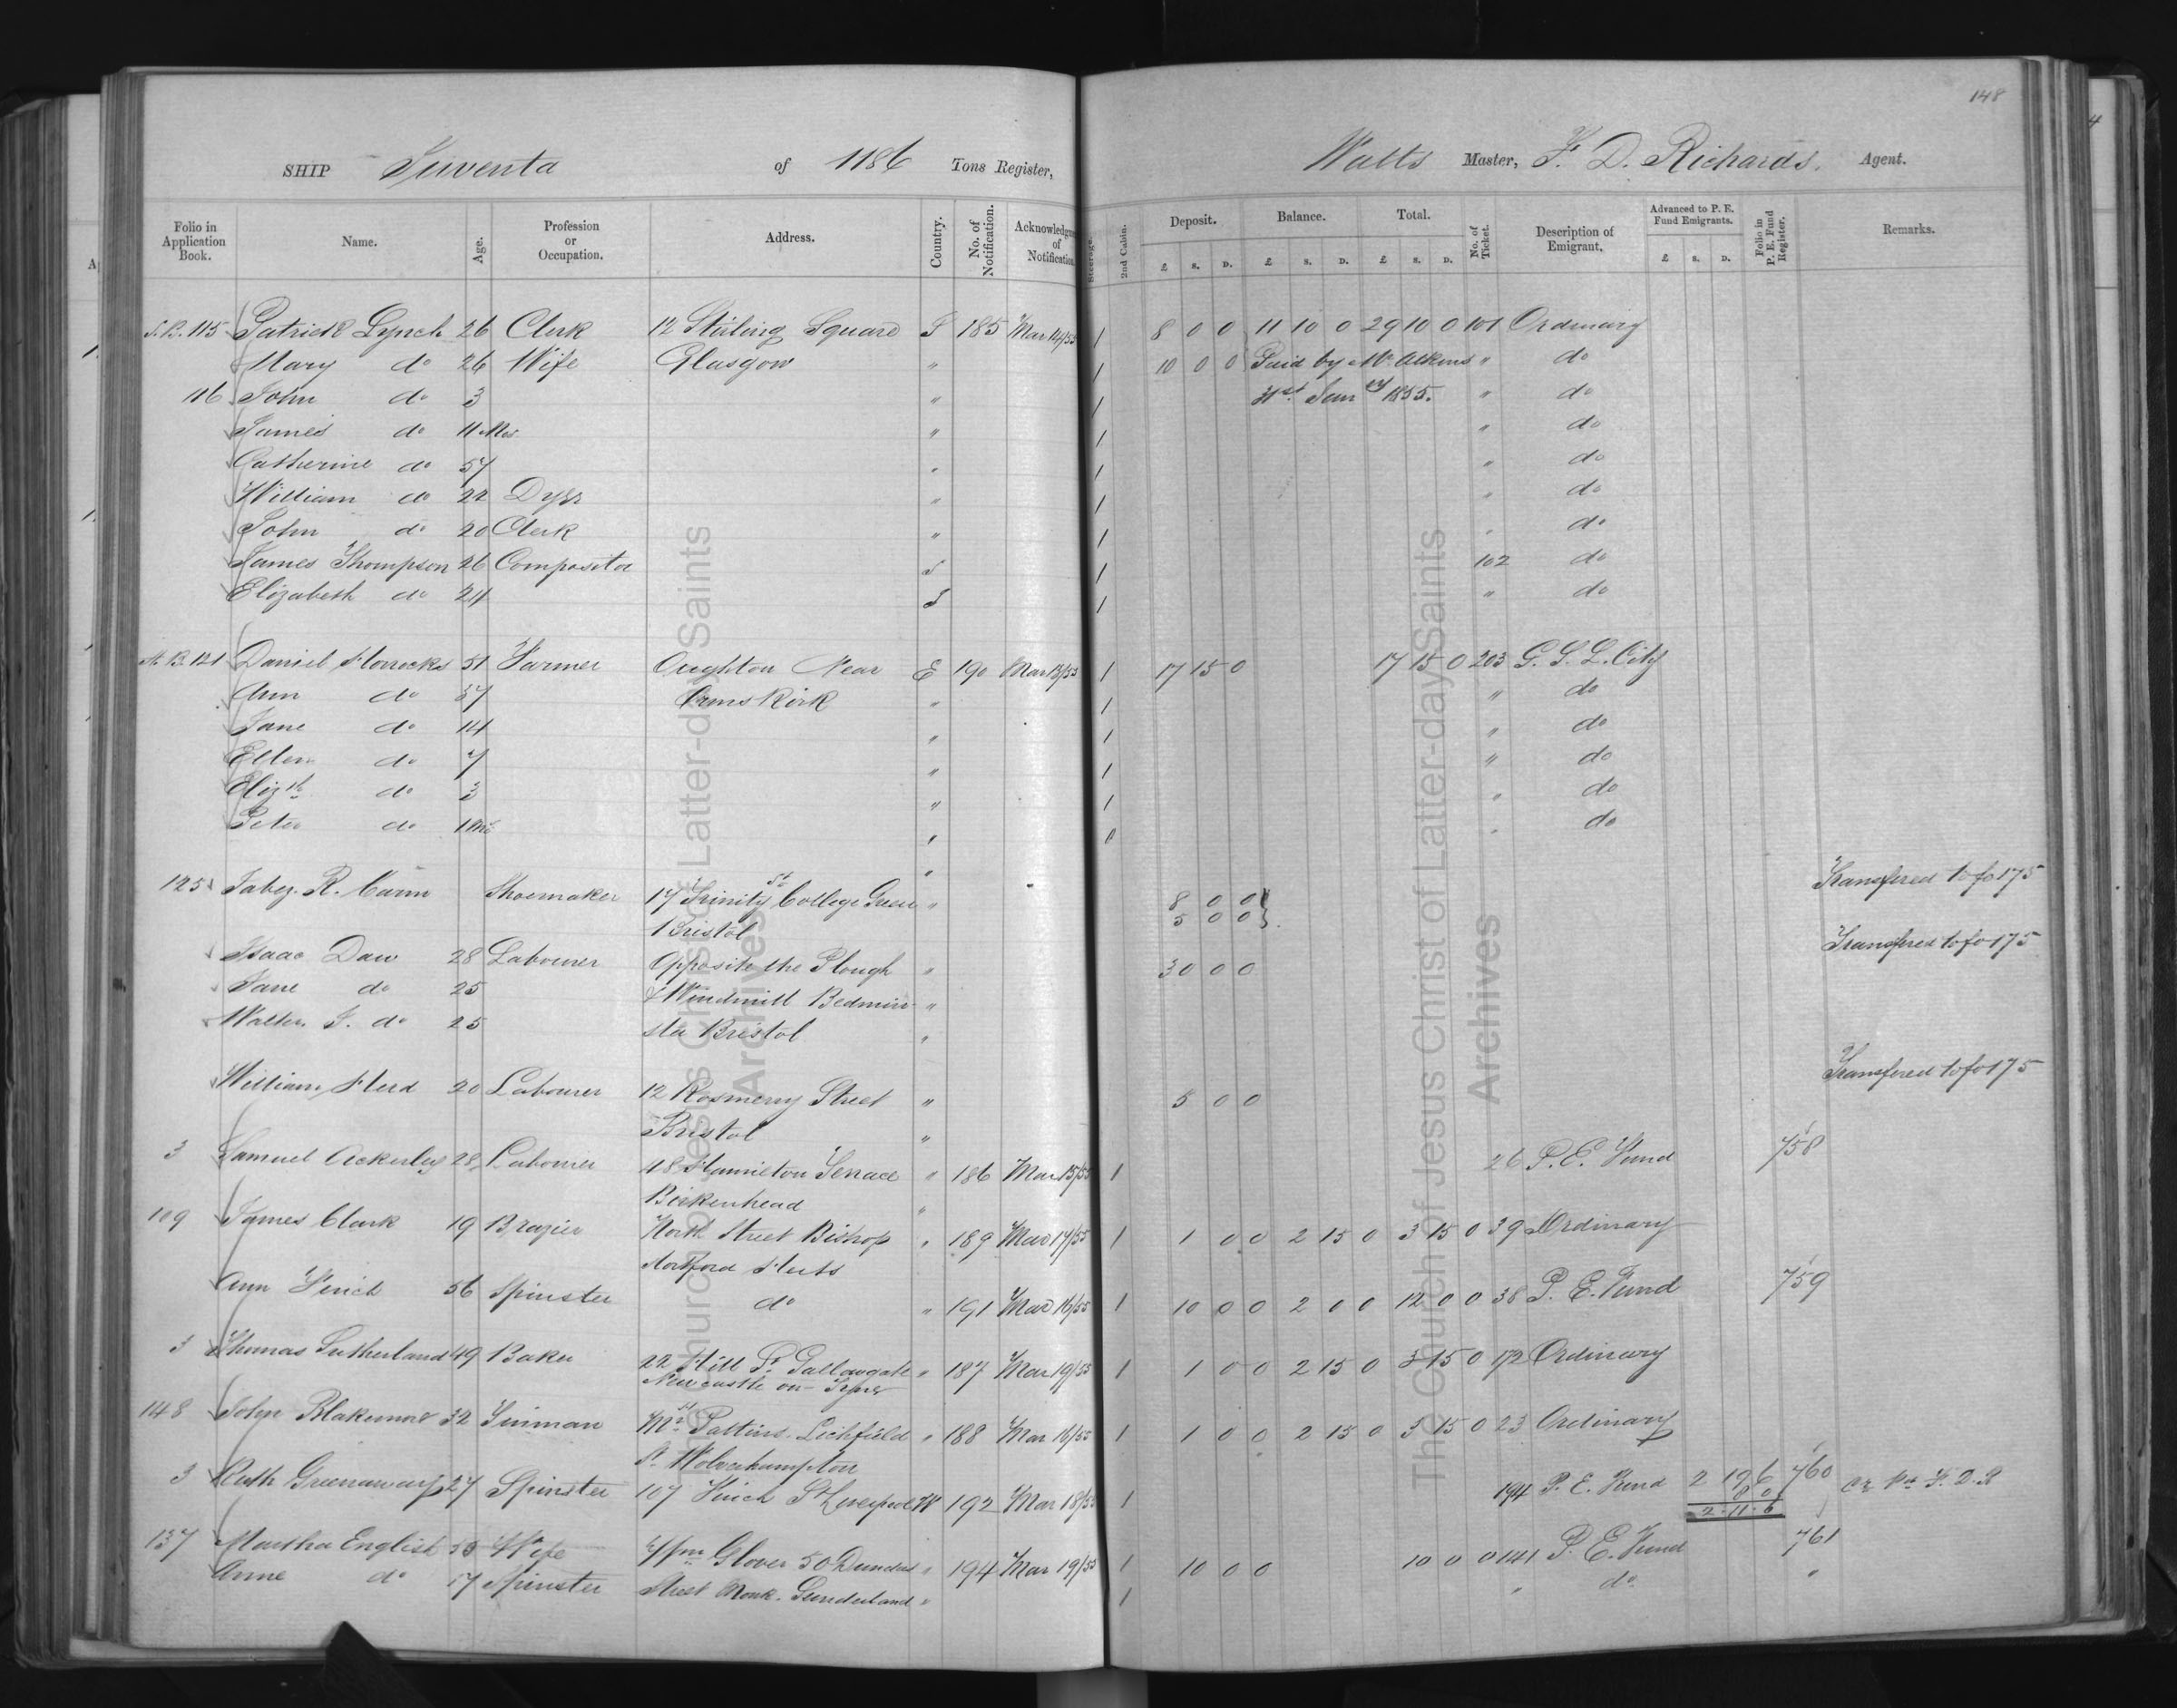 148
SHIP Juventa of 1186 Tons Register, Watts Master, F. D. Richards. Agent.
Folio in Application Book. Name. Age. Profession or Occupation. Address. Country. No. of Notification. Acknowledgm of Notification Steerage. 2nd Cabin. Deposit. Balance. Total. No. of Ticket. Description of Emigrant. Advanced to P. E. Fund Emigrants. Folio in P. E. Fund Register. Remarks.
£ S. D. £ S. D. £ S. D. £ S. D.
S.B. 115 Patrick Lynch 26 Clerk 12 Stirling Square S 185 Mar 14/55 1 8 0 0 11 10 0 29 10 0 101 Ordinary
Mary do 26 Wife Glasgow " 1 10 0 0 Paid by Mr Atkins " do
116 John do 3 " 1 31st Jany 1855. " do
James do 11 Mos " 1 " do
Catherine do 57 " 1 " do
William do 22 Dyer " 1 " do
John do 20 Clerk " 1 " do
James Thompson 26 Compositor S 1 102 do
Elizabeth do 24 S 1 " do
121 Daniel Horrocks 51 Farmer Aughton Near E 190 Mar 15/55 1 17 15 0 17 15 0 203 G. S. L. City
Ann do 37 Ormskirk " 1 " do
Jane do 14 " 1 " do
Ellen do 7 " 1 " do
Elizth do 3 " 1 " do
Peter do 1 Mo " " do
125 Jabez. R. Carin Shoemaker 17 Trinity St College Green " 8 0 0 Transfered to fo 175
Bristol 5 0 0
Isaac Daw 28 Labourer Opposite the Plough " 30 0 0 Transfered to fo 175
Jane do 25 & Windmill Bedmin- "
Walter. J. do 25 ster Bristol "
William Herd 20 Labourer 12 Rosmerry Street " 5 0 0 Transfered to fo 175
Bristol "
3 Samuel Ackerley 28 Labourer 48 Hamilton Terrace " 186 Mar 15/55 1 26 P. E. Fund 758
Birkenhead "
109 James Clark 19 Brazier North Street Bishop " 189 Mar 17/55 1 1 0 0 2 15 0 3 15 0 39 Ordinary
Stortford Herts
Ann Finch 56 Spinster do " 191 Mar 16/55 1 10 0 0 2 0 0 12 0 0 38 P. E. Fund 759
3 Thomas Sutherland 49 Baker 22 Hill St Gallowgate " 187 Mar 19/55 1 1 0 0 2 15 0 3 15 0 172 Ordinary
Newcastle on Tyne
148 John Blakemore 32 Tinman Mrs Pattins. Lichfield " 188 Mar 16/55 1 1 0 0 2 15 0 3 15 0 23 Ordinary
St Wolverhampton
3 Ruth Greenaway 27 Spinster 107 Finch St Liverpool W 192 Mar 18/55 1 194 P. E. Fund 2 19 6 760 F. D. R
2 . 11 . 6
137 Martha English 53 Wife Wm Glover 50 Dundas " 194 Mar 19/55 1 10 0 0 10 0 0 141 P. E. Fund 761
Anne do 17 Spinster Street Monk. Sunderland " 1 " do "
The Church of Jesus Christ of Latter-day Saints
Archives
The Church of Jesus Christ of Latter-day Saints
Archives